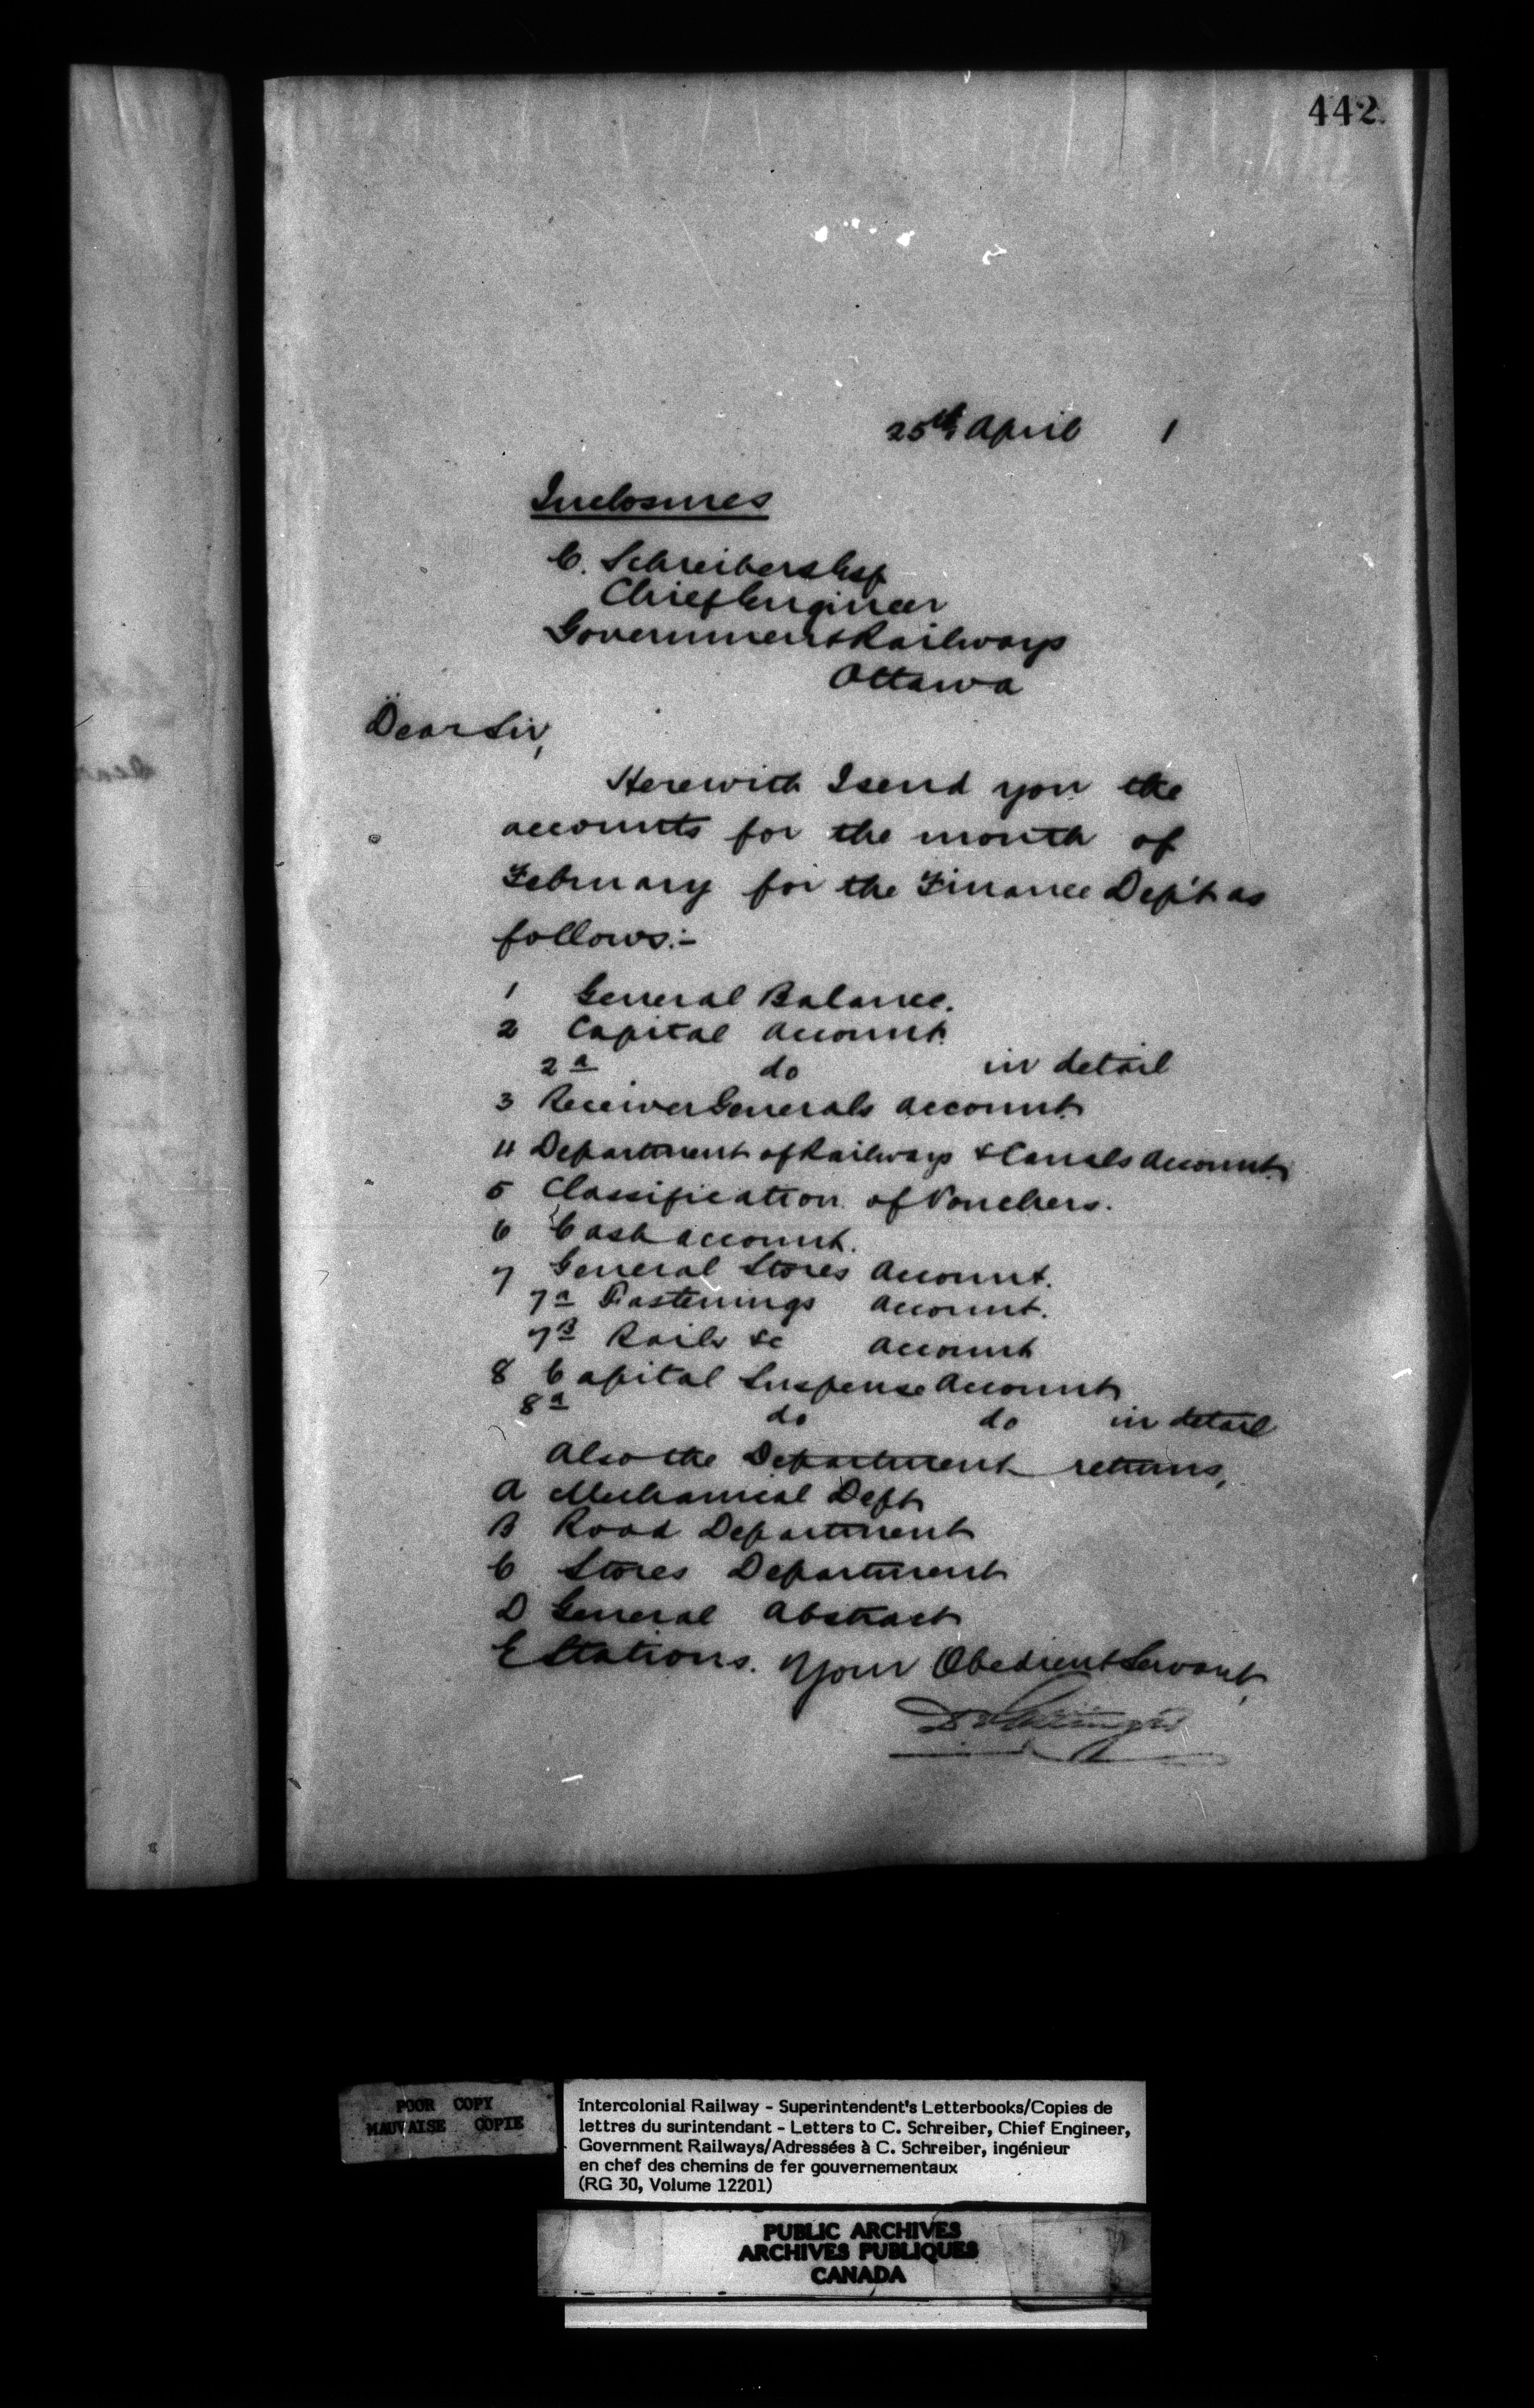 442.
25th April 1
Inclosures
C. Schreiber Esq
Chief Engineer
Government Railways
Ottawa
Dear Sir,
Herewith I send you the
accounts for the month of
February for the Finance Dep't as
follows:-
1 General Balance.
2 Capital Account.
2a do in detail
3 Receiver Generals Account.
4 Department of Railways & Canals Account.
5 Classification of Vouchers.
6 Cash Account.
7 General Stores Account.
7a Fastenings Account.
7B Rails &c Account
8 Capital Suspense Account
8a do do in detail
Also the Department returns,
A Mechanical Dept
B Road Department
C Stores Department
D General Abstract
E Stations. Your Obedient Servant,
D Pottinger
POOR COPY
MAUVAISE COPIE
Intercolonial Railway - Superintendent's Letterbooks/Copies de
lettres du surintendant - Letters to C. Schreiber, Chief Engineer,
Government Railways/Adressées à C. Schreiber, ingénieur
en chef des chemins de fer gouvernementaux
(RG 30, Volume 12201)
PUBLIC ARCHIVES
ARCHIVES PUBLIQUES
CANADA